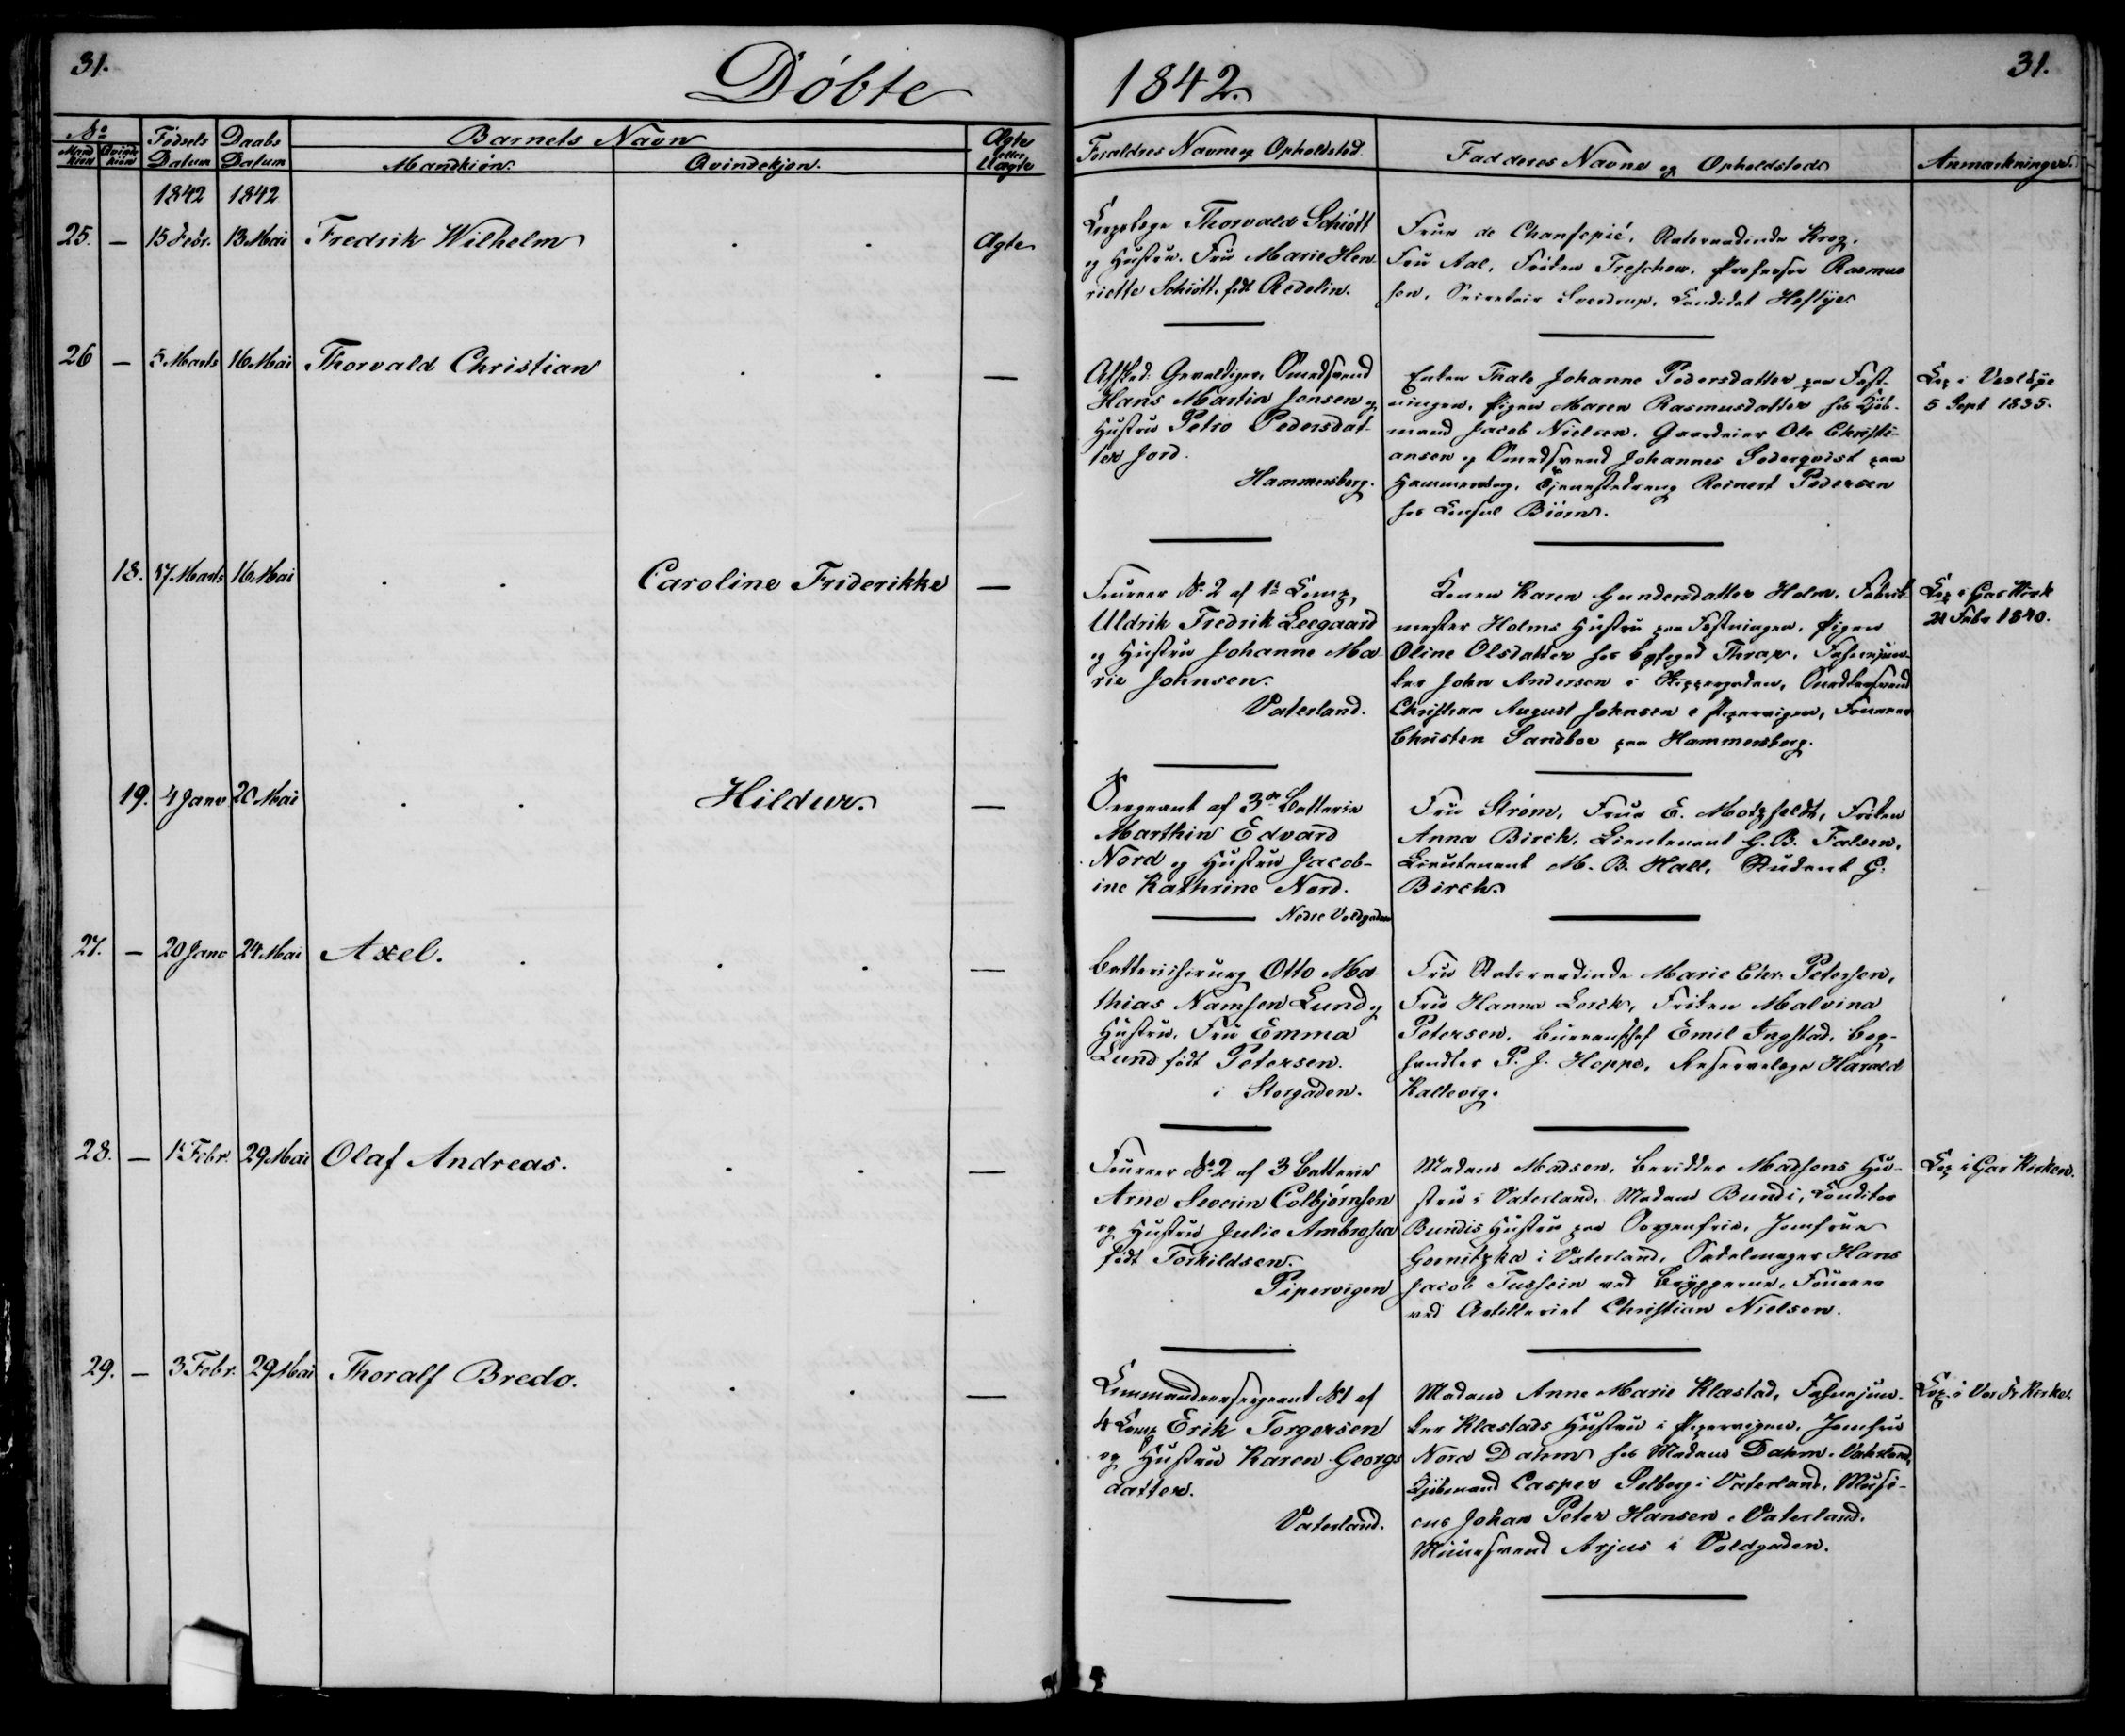 31.
Döbte
1842.
31.
No
Mandkiön Qvindekiön
Fødsels Datum
Daabs Datum
Barnets Navn
Mandkiön.
Qvindekjøn.
Ægte eller Uægte
Foraldres Navne og Opholdsted.
Fadderes Navne og Opholdsteds
Anmarkninger.
1842 1842
25. – 15 Febr. 13 Mai Fredrik Wilhelm Ægte
Corpslæge Thorvald Schiött
og Hustru. Fru Marie Hen-
riette Schiött. født Redelin.
Frue de Chansepié, Statsraadinde Krog,
Fru Aal, Fröken Treschow, Professor Rasmus
sen, Secretair Sverdrup, Candidat Heftye
26 – 5 Marts 16 Mai Thorvald Christian –
Afsked: Gevaldiger, Smedsvend
Hans Martin Jensen og
Hustru Petro Pedersdat-
ter Jord.
Hammersborg.
Enken Thale Johanne Pedersdatter paa Fæst-
ningen, Pigen Maren Rasmusdatter hos Kjøb-
mand Jacob Nielsen, Gaardeier Ole Christi-
ansen og Smedsvend Johannes Soderqvist paa
Hammersborg, Tjenestedreng Reinert Pedersen
hos Consul Biörn.
Cop i Vestbye
5 Sept 1835.
18. 17 Marts 16 Mai Caroline Friderikke –
Foureer No 2 af 1te Comp
Uldrik Fredrik Leegaard
og Hustru Johanne Ma
rie Johnsen.
Vaterland.
Konen Karen Gundersdatter Holm, Fabrik-
mester Holms Hustru paa Fæstningen, Pigen
Oline Olsdatter hos Byfoged Thrap,
John Andersen i Skippergaden, Snedkersvend
Christian August Johnsen i Pipervigen, Foureer
Christen Sandboe paa Hammersborg.
Cop i Gar Kirk
21 Febr 1840.
19. 4 Janv 20 Mai Hildur. –
Sergeant af 3die Batterie
Marthin Edvard
Nord og Hustru Jacob-
ine Kathrine Nord.
Nedre Voldgaden
Fru Strøm, Frue E. Motzfeldt, Fröken
Anna Birch, Lieutenant G. B. Falsen,
Lieutenant M. B. Hall, Student G.
Birch.
27. – 20 Janv 24 Mai Axel. –
Batterichirurg Otto Ma-
thias Namsen Lund og
Hustru, Fru Emma
Lund født Petersen.
i Storgaden.
Fru Statsraadinde Marie Chr. Petersen,
Fru Hanna Lorck, Fröken Malvina
Petersen, Bureauchef Emil Ingstad, Bog-
handler P. J. Hoppe, Reservelæge Harald
Kallevig.
28. – 1te Febr. 29 Mai Olaf Andreas. –
Foureer No 2 af 3 Batterie
Arne Severin Colbjørnsen
og Hustru Julie Ambrosia
født Torkildsen.
Pipervigen
Madam Madsen, Berider Madsens Hu-
stru i Vaterland, Madam Bundi, Conditor
Bundis Hustru paa Sorgenfrie, Jomfrue
Gornitzka i Vaterland, Sadelmager Hans
Jacob Tussein ved Bryggerne, Foureer
ved Artilleriet Christian Nielsen.
Cop i Gar Kirken.
29. – 3 Febr. 29 Mai Thoralf Bredo. –
Commandeersergeant No 1 af
4 Comp Erik Torgersen
og Hustru Karen Georgs
datter.
Vaterland.
Madam Anne Marie Klæstad,
Klæstads Hustru i Pipervigen, Jomfru
Nora Dahm hos Madam Dahm i Vaterland,
Kjøbmand Casper Solberg i Vaterland, Musi-
cus Johan Peter Hansen i Vaterland,
Muursvend Arjus i Voldgaden.
Cop. i Vor Fr Kirke.